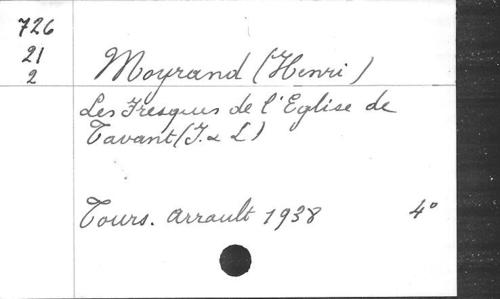 726
21
2
Moyrand (Henri)
Les Fresques de l'Eglise de
Tavant (I. & L)
Tours. Arrault 1938 4°